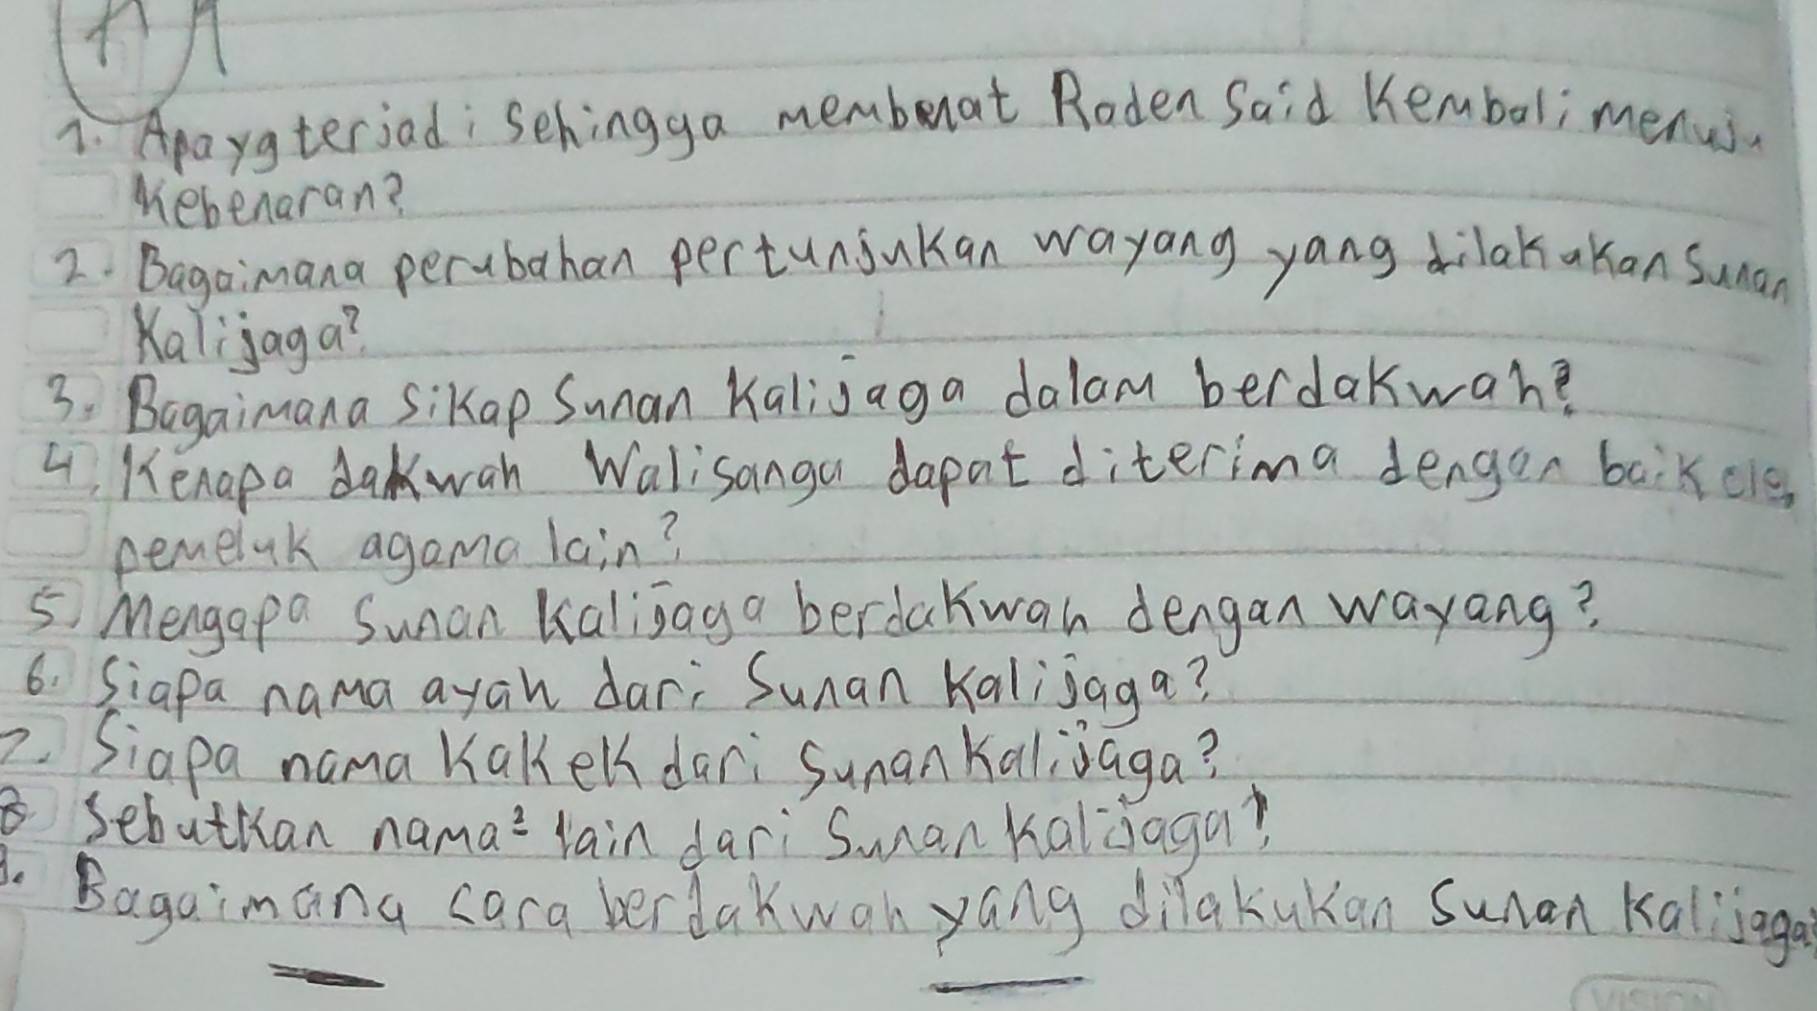 1. Apa yg terjadi sehingga membuat Raden Said Kembali menuju
Kebenaran?
2. Bagaimana perubahan pertunjukan wayang yang dilakukan Sunan
Kalijaga?
3. Bagaimana sikap Sunan Kalijaga dalam berdakwah?
4. Kenapa dakwah Walisanga dapat diterima dengan baik oleh
pemeluk agama lain?
5. Mengapa Sunan Kalijaga berdakwah dengan wayang?
6. Siapa nama ayah dari Sunan Kalijaga?
7. Siapa nama Kakek dari Sunan Kalijaga?
8. Sebutkan nama² lain dari Sunan Kalijaga!
9. Bagaimana cara berdakwah yang dilakukan Sunan Kalijaga?
VISION